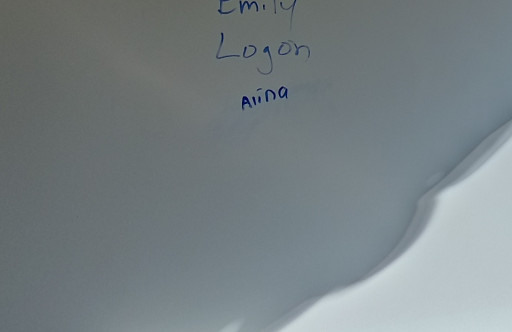 Emily
Logon
Alina